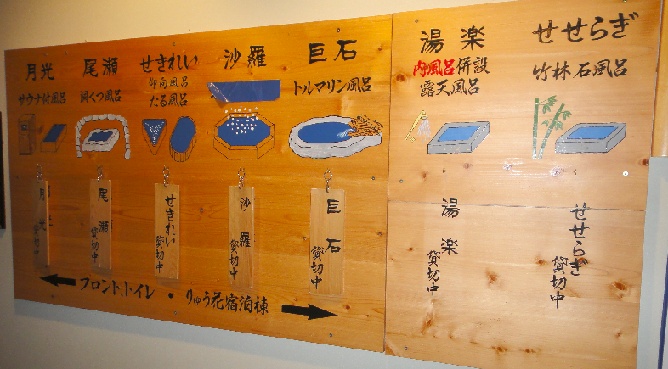 月光
サウナ付風呂
尾瀬
洞くつ風呂
せきれい
たる風呂
沙羅
巨石
トルマリン風呂
湯楽
内風呂併設
露天風呂
せせらぎ
竹林石風呂
月光
尾瀬
貸切中
せきれい
貸切中
沙羅
貸切中
巨石
貸切中
湯楽
貸切中
せせらぎ
貸切中
フロント・トイレ・りゅう花宿泊棟